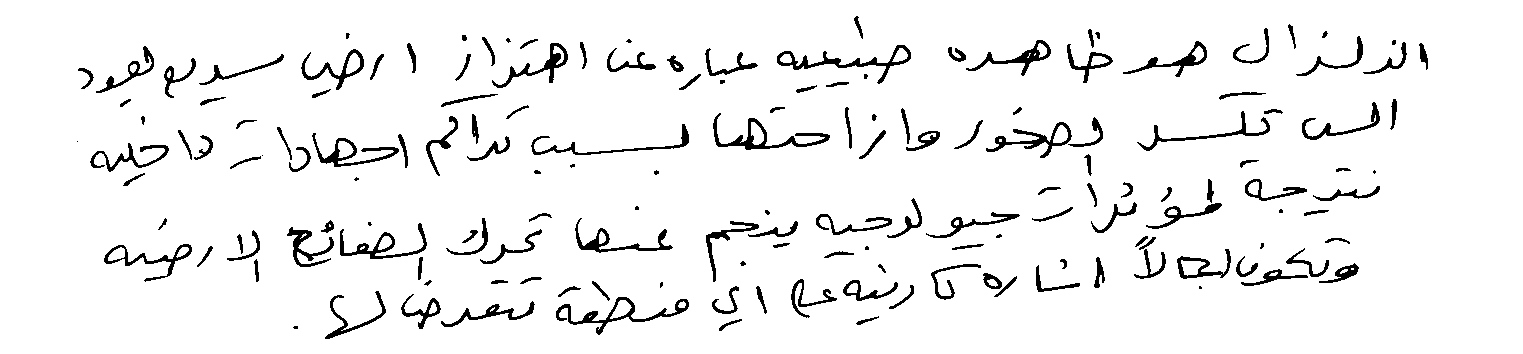 الزلزال هو ظاهره طبيعيه عباره عن اهتزاز ارضي سريع يعود
الى تكسر الصخور وازاحتها بسبب تراكم اجهادات داخليه
نتيجة لمؤثرات جيولوجيه ينجم عنها تحرك الصفائح الارضيه
وتكون اجمالاً اثاره كارثيه على اي منطقة تتعرض لها .